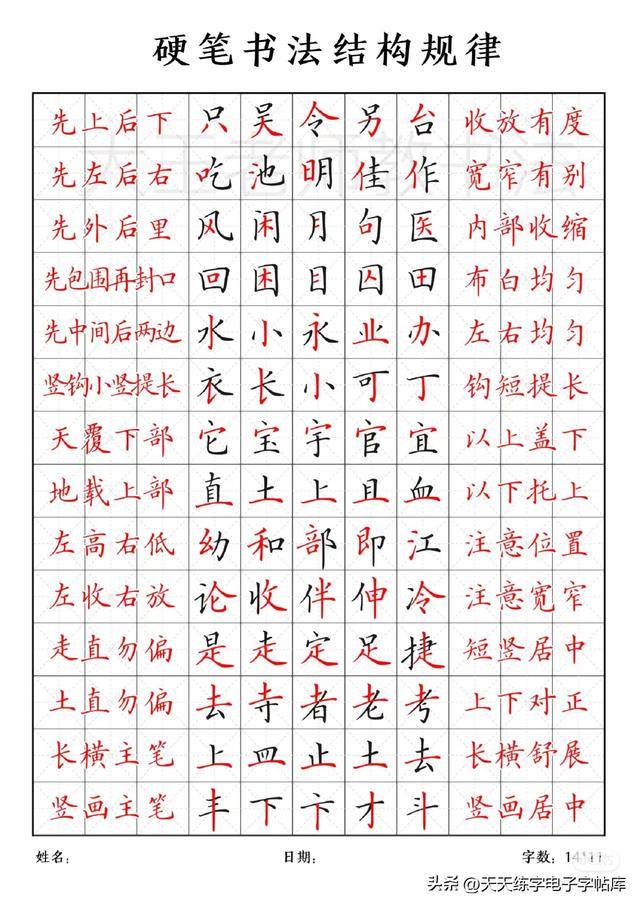 硬笔书法结构规律
先上后下 只吴令另台 收放有度
先左后右 吃池明佳作 宽窄有别
先外后里 风闲月句医 内部收缩
先包围再封口 回困目囚田 布白均匀
先中间后两边 水小永业办 左右均匀
竖钩小竖提长 衣长小可丁 钩短提长
天覆下部 它宝宇官宜 以上盖下
地载上部 直土上且血 以下托上
左高右低 幼和部即江 注意位置
左收右放 论收伴伸冷 注意宽窄
走直勿偏 是走定足捷 短竖居中
土直勿偏 去寺者老考 上下对正
长横主笔 上皿止土去 长横舒展
竖画主笔 丰下卞才斗 竖画居中
姓名： 日期： 字数：
头条 @天天练字电子字帖库